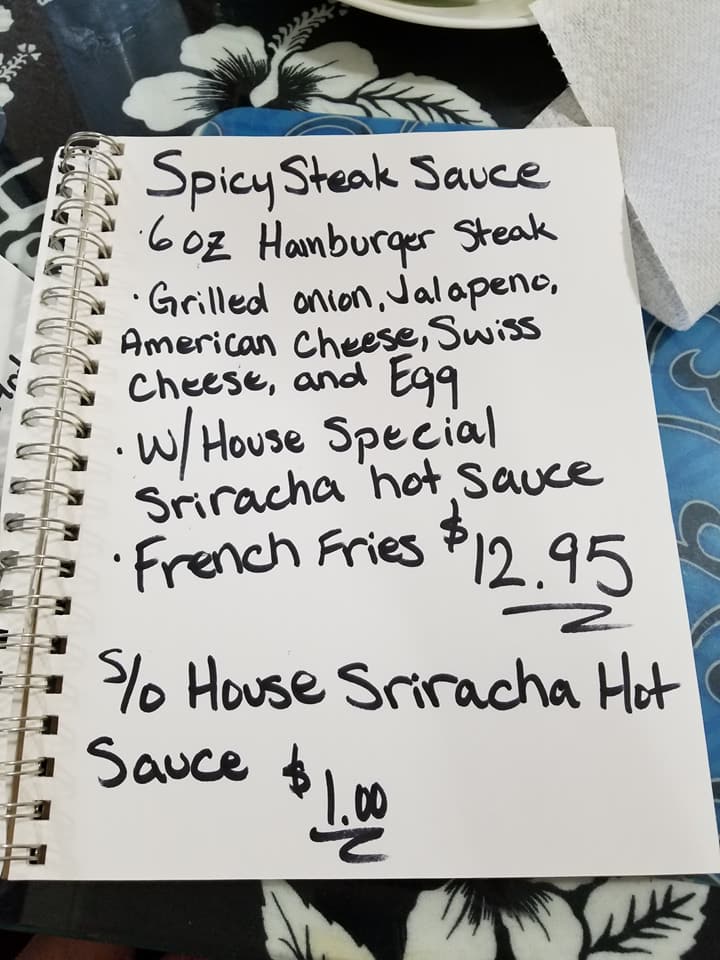 Spicy Steak Sauce
·6 oz Hamburger Steak
·Grilled onion, Jalapeno,
American Cheese, Swiss
Cheese, and Egg
·W/House Special
Sriracha hot sauce
·French Fries $12.95
S/O House Sriracha Hot
Sauce $1.00